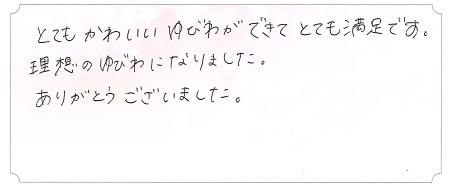 とても かわいい ゆびわが できて とても 満足です。
理想の ゆびわに なりました。
ありがとう ございました。